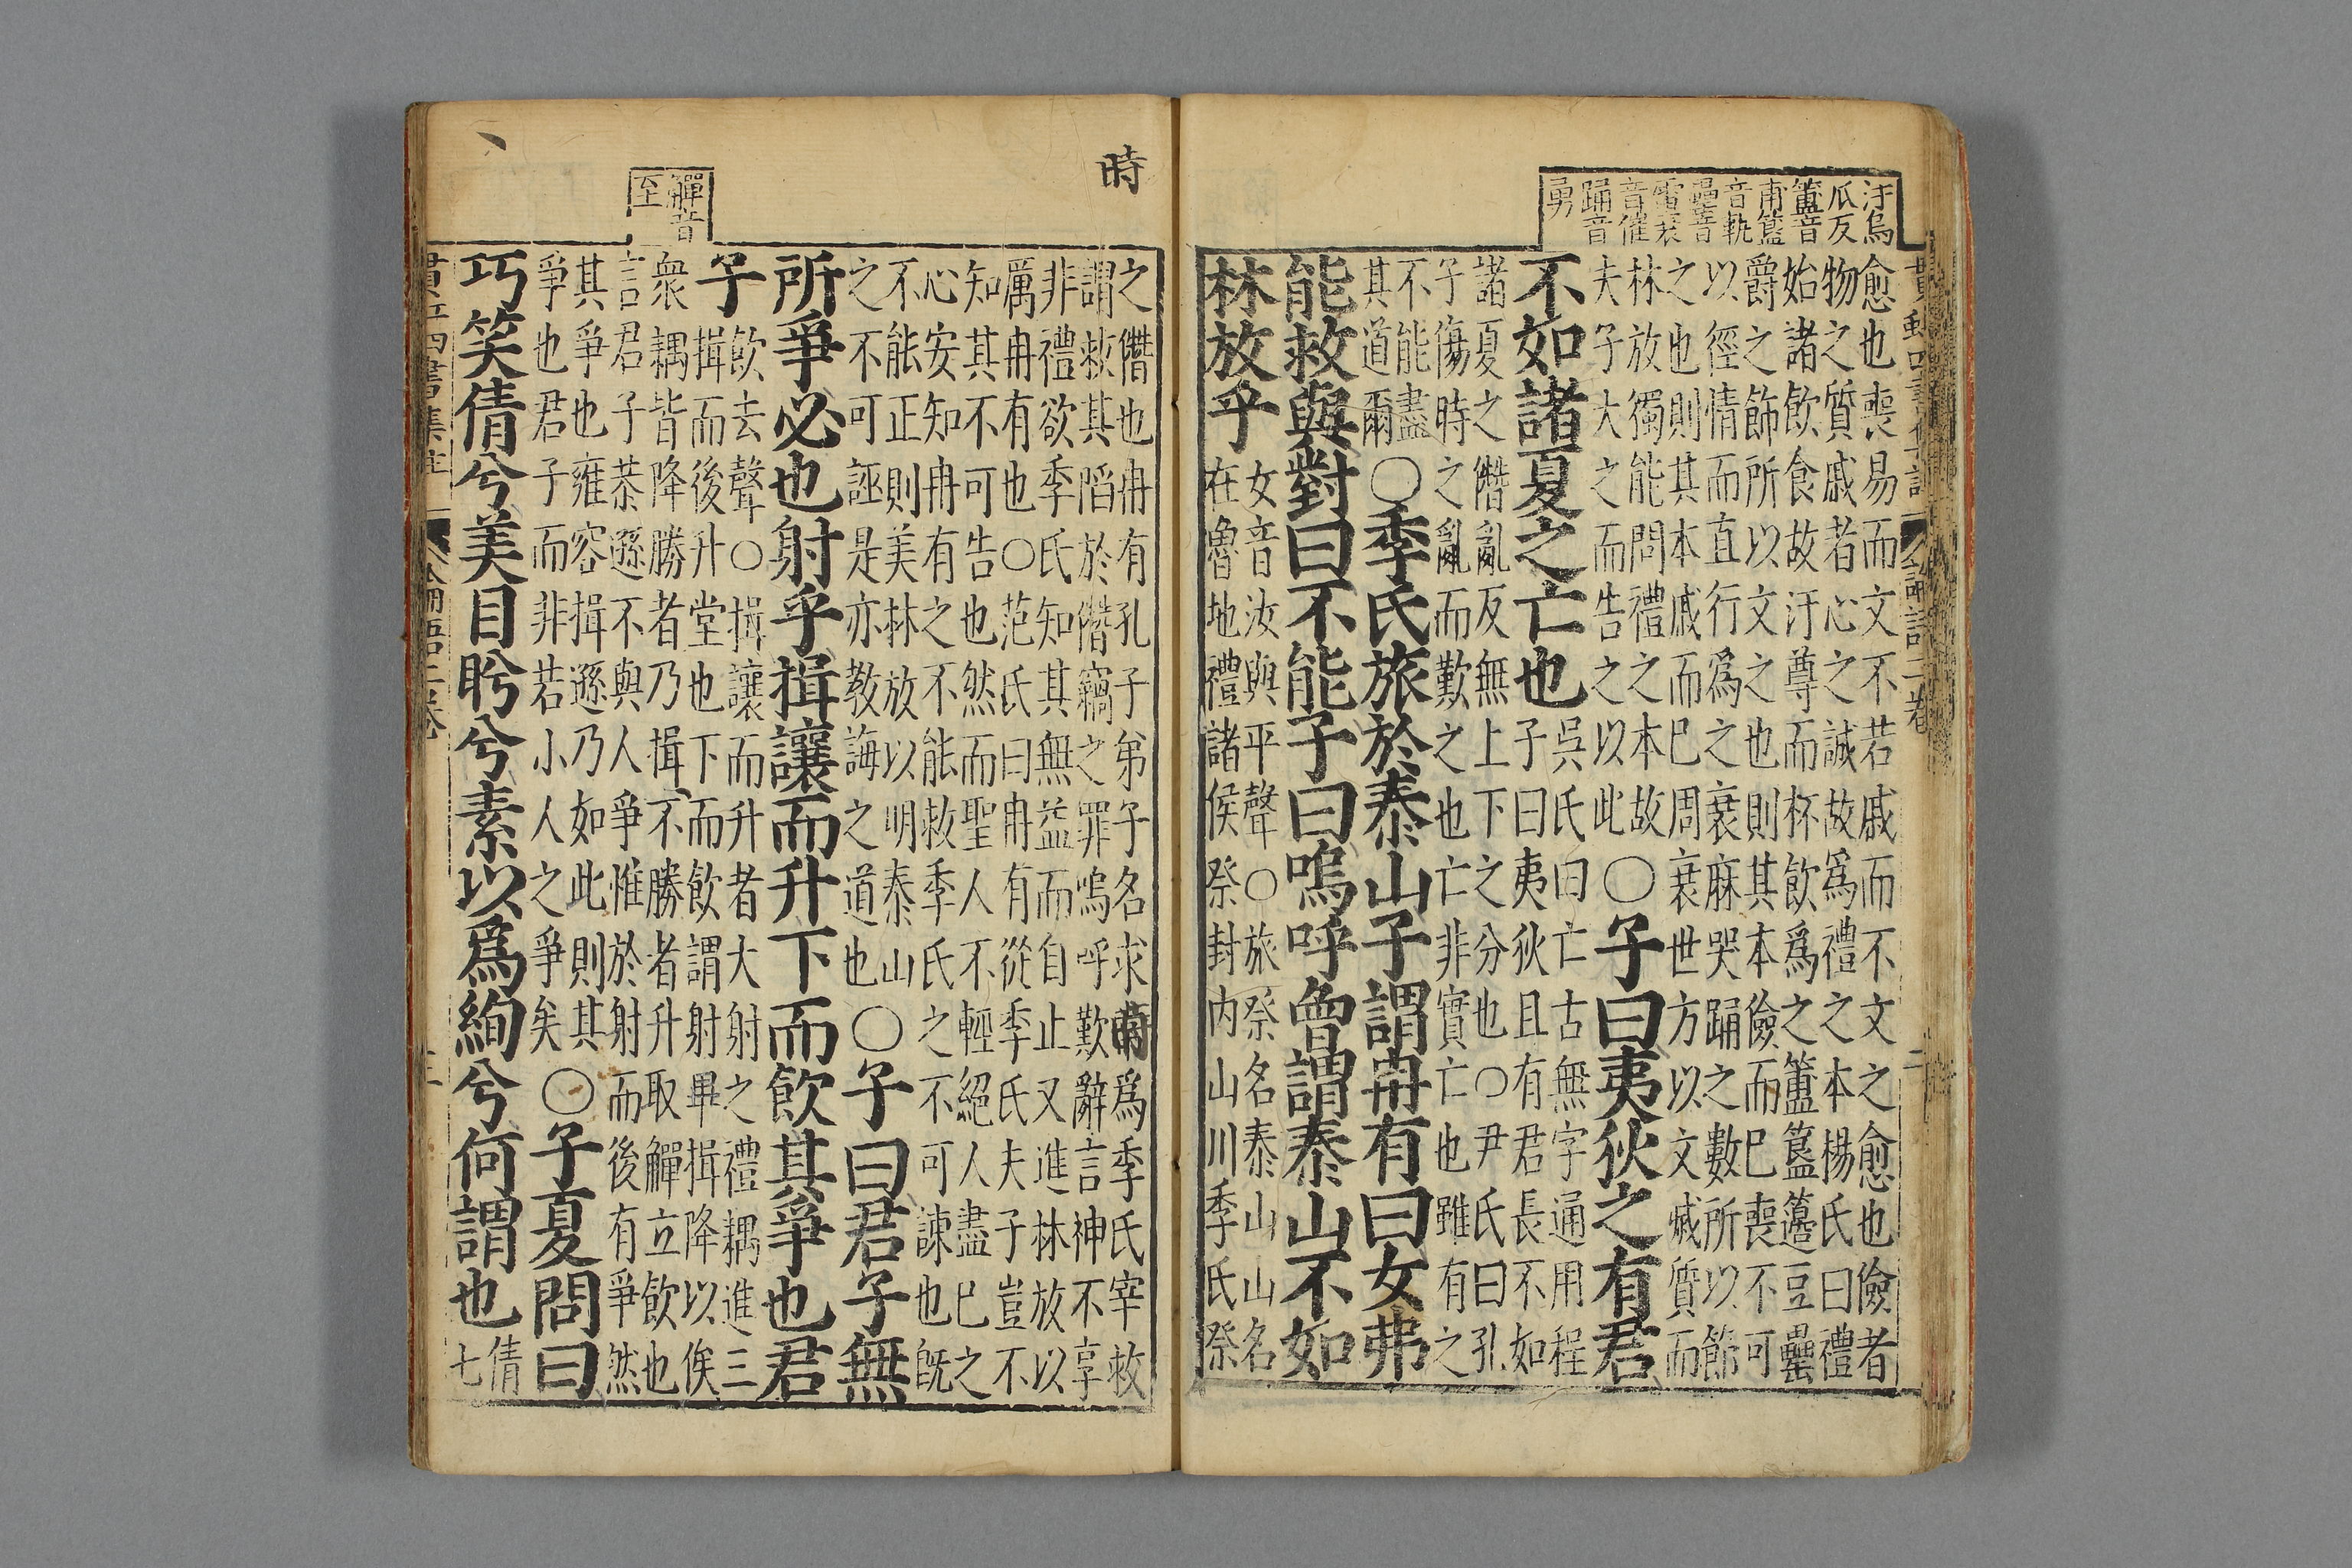 汙烏
瓜反
簠音
甫簋
音軌
罍音
雷衰
音催
踊音
勇
論語二卷
二
愈也喪易而文不若戚而不文之愈也儉者
物之質戚者心之誠故爲禮之本楊氏曰禮
始諸飲食故汙尊而杯飲爲之簠簋籩豆罍
爵之飾所以文之也則其本儉而已喪不可
以徑情而直行爲之衰麻哭踊之數所以節
之也則其本戚而已周衰世方以文烕質而
林放獨能問禮之本故
夫子大之而告之以此
○子曰夷狄之有君
不如諸夏之亡也
吳氏曰亡古無字通用程
子曰夷狄且有君長不如
諸夏之僭亂反無上下之分也○尹氏曰孔
子傷時之亂而歎之也亡非實亡也雖有之
不能盡
其道爾
○季氏旅於泰山子謂冉有曰女弗
能救與對曰不能子曰嗚呼曾謂泰山不如
林放乎
女音汝與平聲○旅祭名泰山山名
在魯地禮諸侯祭封内山川季氏祭
時
之僭也冉有孔子弟子名求爲季氏宰救
謂救其陷於僭竊之罪嗚呼歎辭言神不享
非禮欲季氏知其無益而自止又進林放以
厲冉有也○范氏曰冉有從季氏夫子豈不
知其不可告也然而聖人不輕絕人盡已之
心安知冉有之不能救季氏之不可諫也旣
不能正則美林放以明泰山
之不可誣是亦敎誨之道也
○子曰君子無
所爭必也射乎揖讓而升下而飲其爭也君
子
飲去聲○揖讓而升者大射之禮耦進三
揖而後升堂也下而飲謂射畢揖降以俟
觶音
至
衆耦皆降勝者乃揖不勝者升取觶立飲也
言君子恭遜不與人爭惟於射而後有爭然
其爭也雍容揖遜乃如此則其
爭也君子而非若小人之爭矣
○子夏問曰
巧笑倩兮美目盻兮素以爲絢兮何謂也
倩
七
四書集註
論語二卷